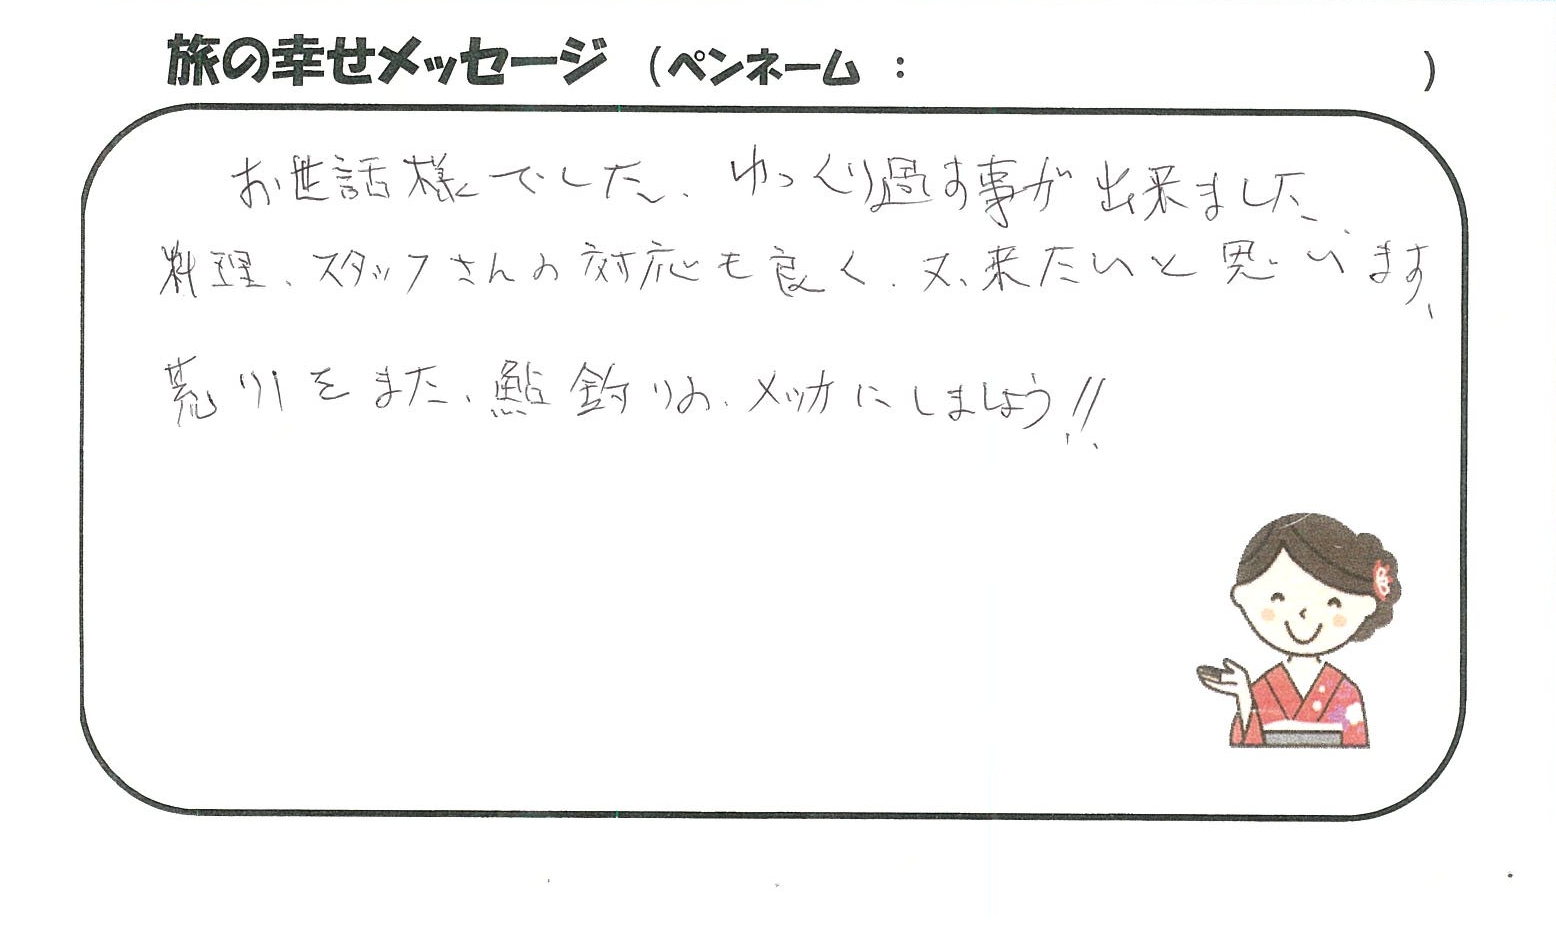 旅の幸せメッセージ (ペンネーム : )
お世話様でした、ゆっくり過す事が出来ました、
料理、スタッフさんの対応も良く、又、来たいと思います、
荒川をまた、鮎釣りの、メッカにしましょう!!